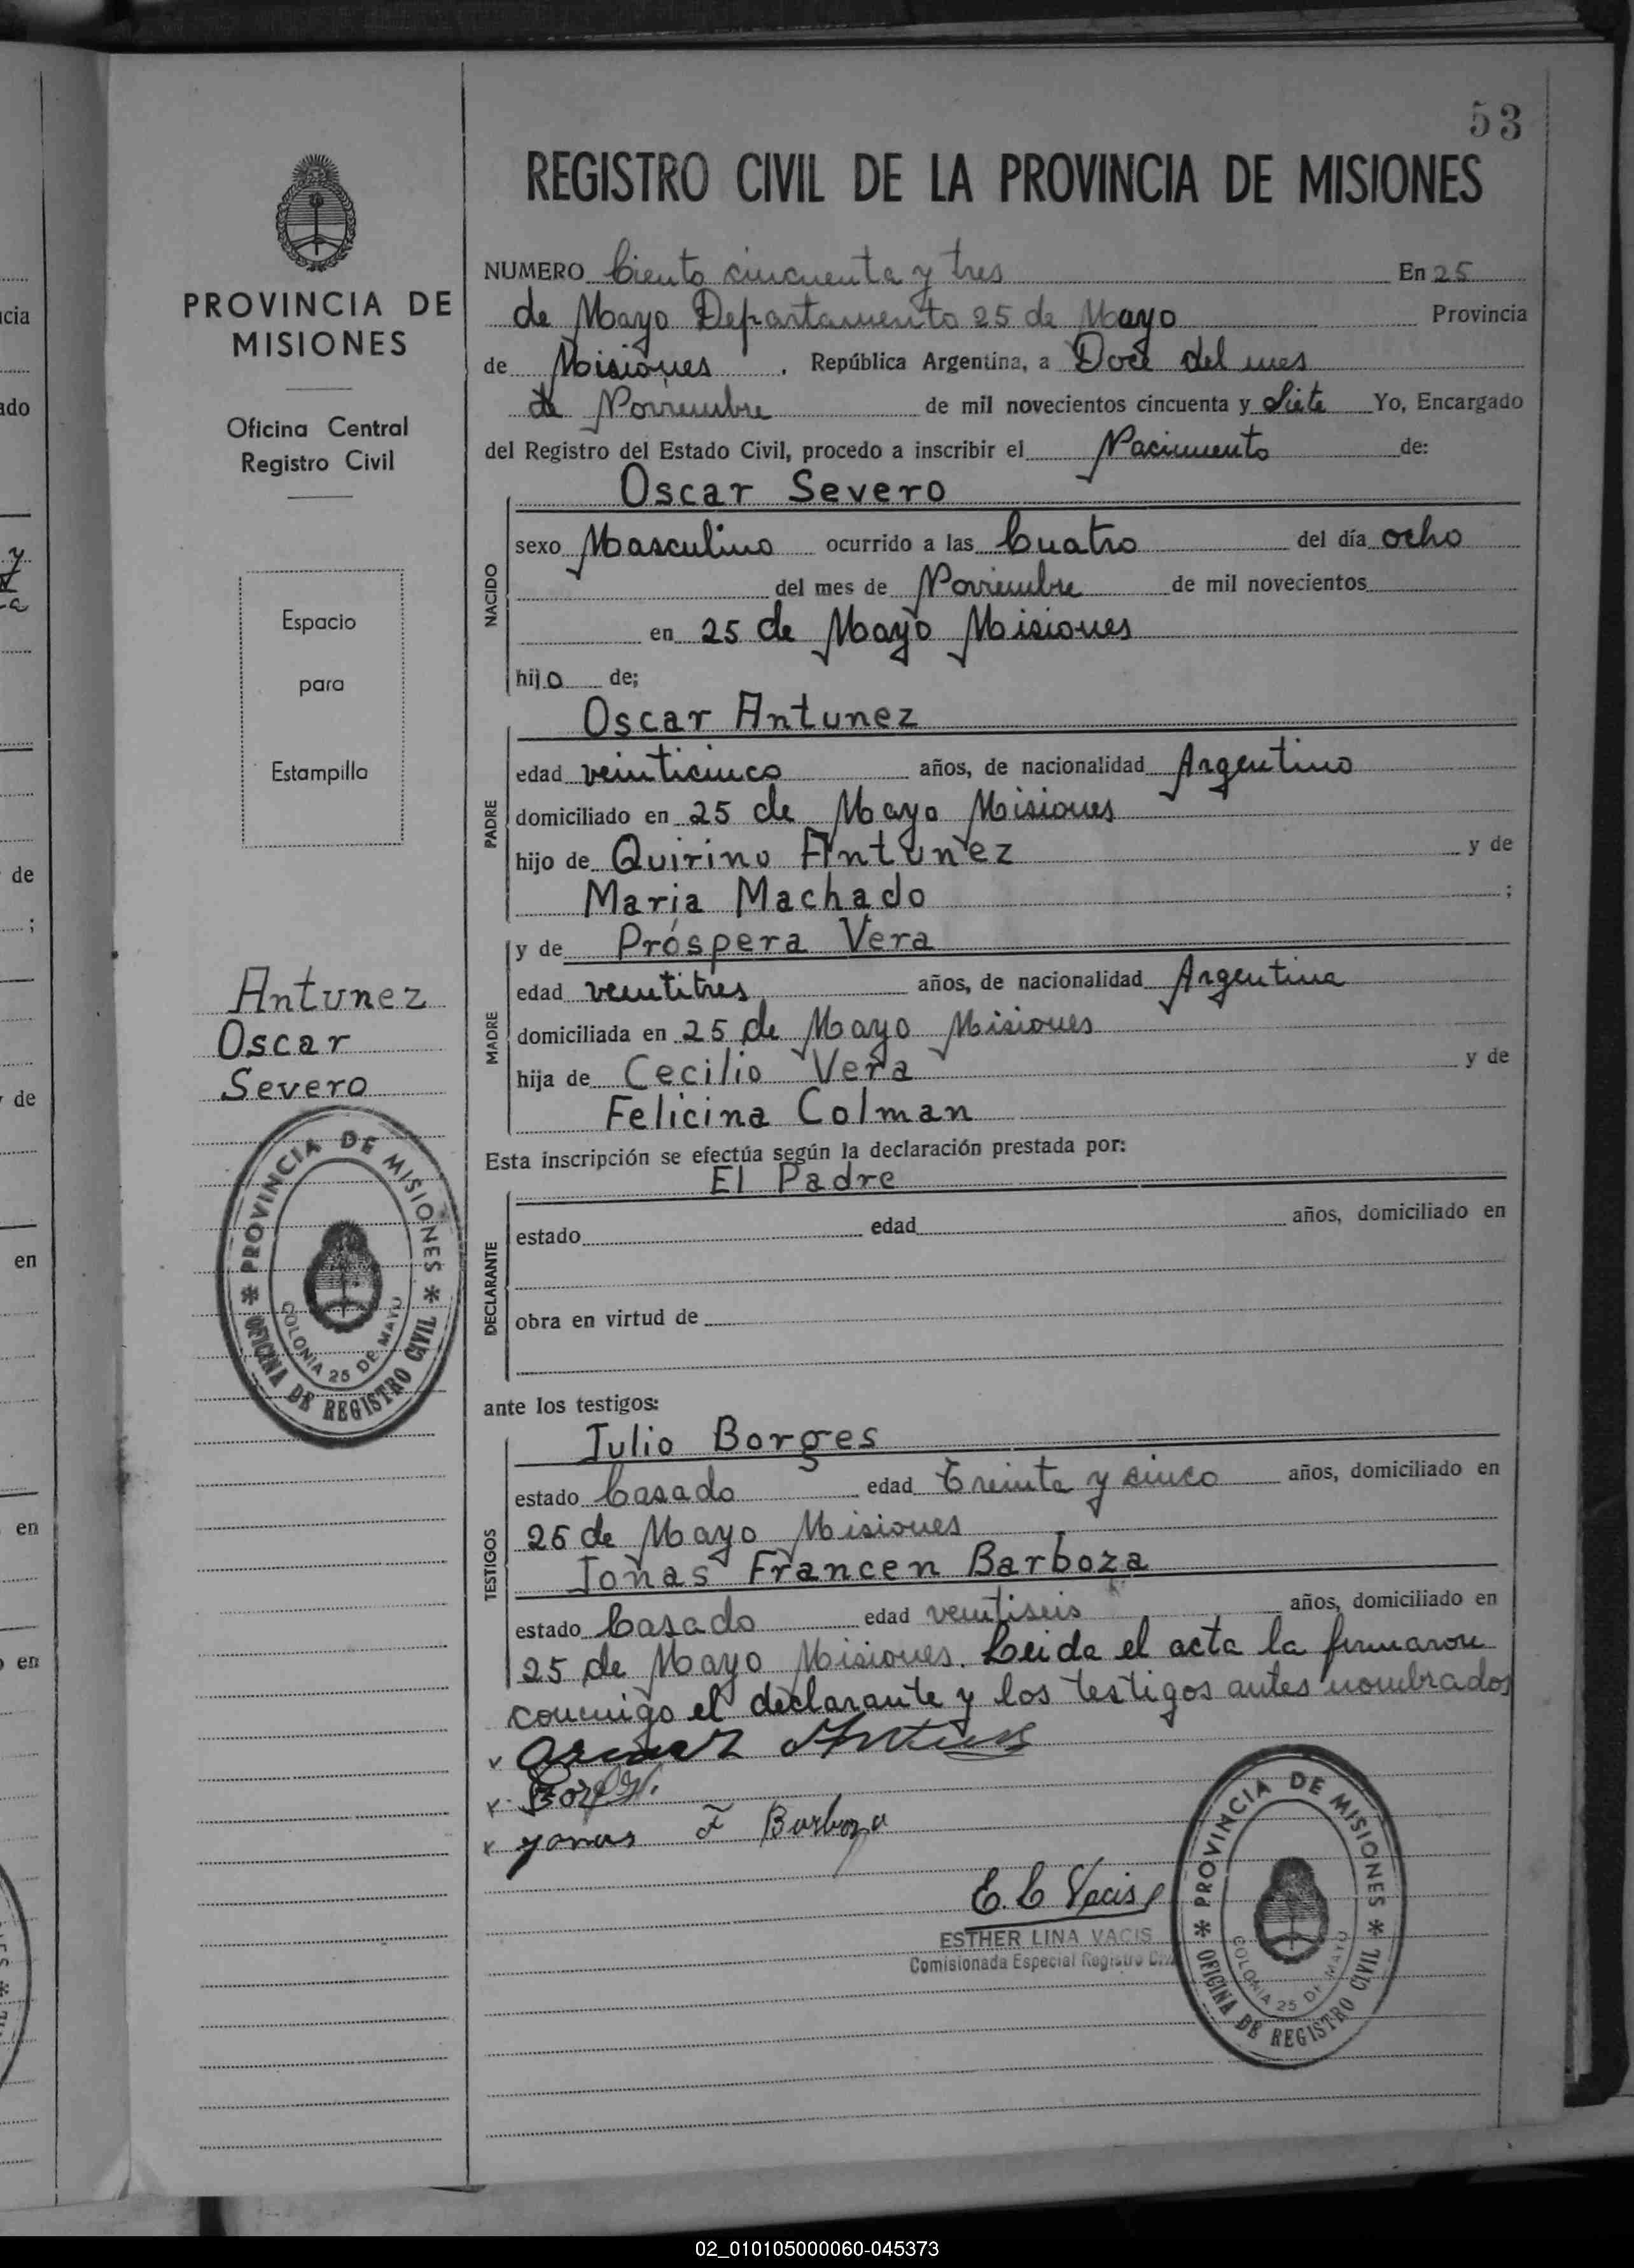 53
REGISTRO CIVIL DE LA PROVINCIA DE MISIONES
PROVINCIA DE
MISIONES
Oficina Central
Registro Civil
Espacio
para
Estampilla
Antunez
Oscar
Severo
PROVINCIA DE MISIONES
COLONIA 25 DE MAYO
OFICINA DE REGISTRO CIVIL
NUMERO Ciento cincuenta y tres En 25
de Mayo Departamento 25 de Mayo Provincia
de Misiones, República Argentina, a Doce del mes
de Noviembre de mil novecientos cincuenta y Siete Yo, Encargado
del Registro del Estado Civil, procedo a inscribir el Nacimiento de:
NACIDO
Oscar Severo
sexo Masculino ocurrido a las Cuatro del día ocho
del mes de Noviembre de mil novecientos
en 25 de Mayo Misiones
hijo de;
PADRE
Oscar Antunez
edad veinticinco años, de nacionalidad Argentino
domiciliado en 25 de Mayo Misiones
hijo de Quirino Antunez y de
Maria Machado ;
MADRE
y de Próspera Vera
edad veintitres años, de nacionalidad Argentina
domiciliada en 25 de Mayo Misiones
hija de Cecilio Vera y de
Felicina Colman
Esta inscripción se efectúa según la declaración prestada por:
DECLARANTE
El Padre
estado edad años, domiciliado en
obra en virtud de
ante los testigos:
TESTIGOS
Julio Borges
estado Casado edad Treinta y cinco años, domiciliado en
25 de Mayo Misiones
Jonas Francen Barboza
estado Casado edad veintiseis años, domiciliado en
25 de Mayo Misiones. Leida el acta la firmaron
conmigo el declarante y los testigos antes nombrados
Jonas F Barboza
E. L Vacis
ESTHER LINA VACIS
Comisionada Especial Registro
PROVINCIA DE MISIONES
COLONIA 25 DE MAYO
OFICINA DE REGISTRO CIVIL
cia
ado
y
de
;
de
en
en
en
02_010105000060-045373